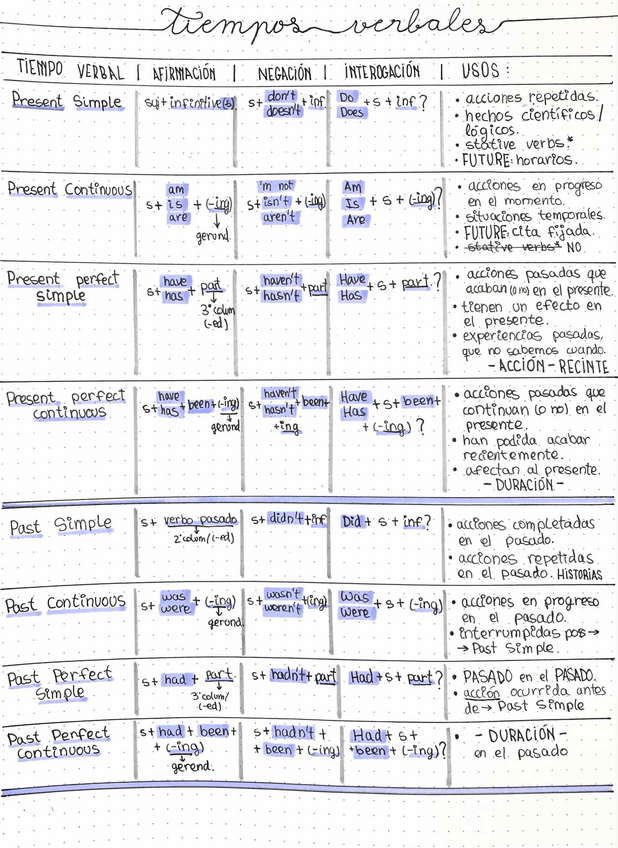 tiempos verbales
TIEMPO VERBAL | AFIRMACIÓN | NEGACIÓN | INTEROGACIÓN | USOS:
Present Simple
suj + infinitive(s)
s + don't doesn't + inf
Do Does + s + inf?
• acciones repetidas.
• hechos científicos/
lógicos.
• stative verbs.*
• FUTURE: horarios.
Present Continuous
s + am is are + (-ing)
gerund.
s + 'm not isn't aren't + (-ing)
Am Is Are + s + (-ing)?
• acciones en progreso
en el momento.
• situaciones temporales.
• FUTURE: cita fijada.
• stative verbs* NO.
Present perfect
simple
s + have has + part
3ª colum
(-ed)
s + haven't hasn't + part
Have Has + s + part.?
• acciones pasadas que
acaban (o no) en el presente.
• tienen un efecto en
el presente.
• experiencias pasadas,
que no sabemos cuando.
- ACCIÓN - RECINTE
Present perfect
continuous
s + have has + been + (-ing)
gerund
s + haven't hasn't + been +
+ing
Have Has + s + been +
+ (-ing)?
• acciones pasadas que
continuan (o no) en el
presente.
• han podida acabar
recientemente.
• afectan al presente.
- DURACIÓN -
Past Simple
s + verbo pasado
2ª colum/(-ed)
s + didn't + inf
Did + s + inf?
• acciones completadas
en el pasado.
• acciones repetidas
en el pasado. HISTORIAS
Past Continuous
s + was were + (-ing)
gerond.
s + wasn't weren't + (ing)
Was Were + s + (-ing)
• acciones en progreso
en el pasado.
• interrumpidas pos →
→ Past Simple.
Past Perfect
Simple
s + had + part.
3ª colum/
(-ed)
s + hadn't + part
Had + s + part?
• PASADO en el PASADO.
• acción ocurrida antes
de → Past Simple
Past Perfect
Continuous
s + had + been +
+ (-ing)
gerend.
s + hadn't +
+ been + (-ing)
Had + s +
+been + (-ing)?
• - DURACIÓN -
en el pasado